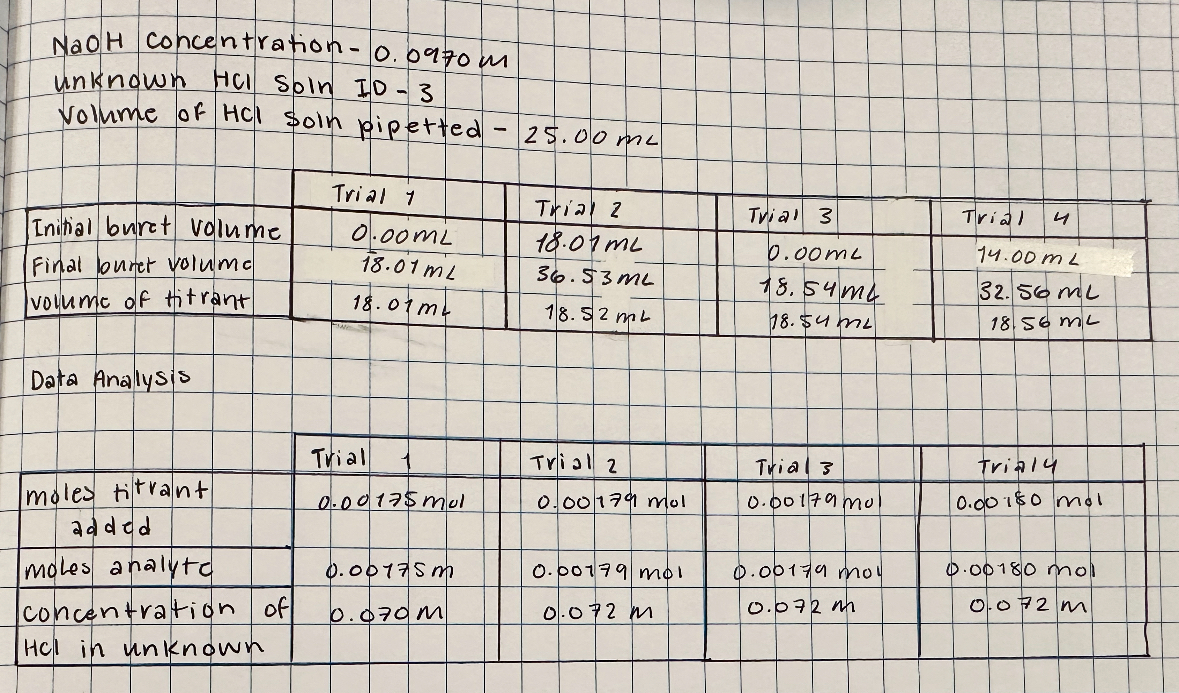 NaOH Concentration - 0.0970 M
unknown HCl Soln ID - 3
Volume of HCl Soln pipetted - 25.00 mL
Trial 1 Trial 2 Trial 3 Trial 4
Initial buret volume 0.00mL 18.01mL 0.00mL 14.00mL
Final buret volume 18.01mL 36.53mL 18.54mL 32.56mL
volume of titrant 18.01mL 18.52mL 18.54mL 18.56mL
Data Analysis
Trial 1 Trial 2 Trial 3 Trial 4
moles titrant 0.00175mol 0.00179 mol 0.00179mol 0.00180 mol
added
moles analyte 0.00175m 0.00179 mol 0.00179 mol 0.00180 mol
concentration of 0.070 M 0.072 M 0.072 M 0.072 M
HCl in unknown